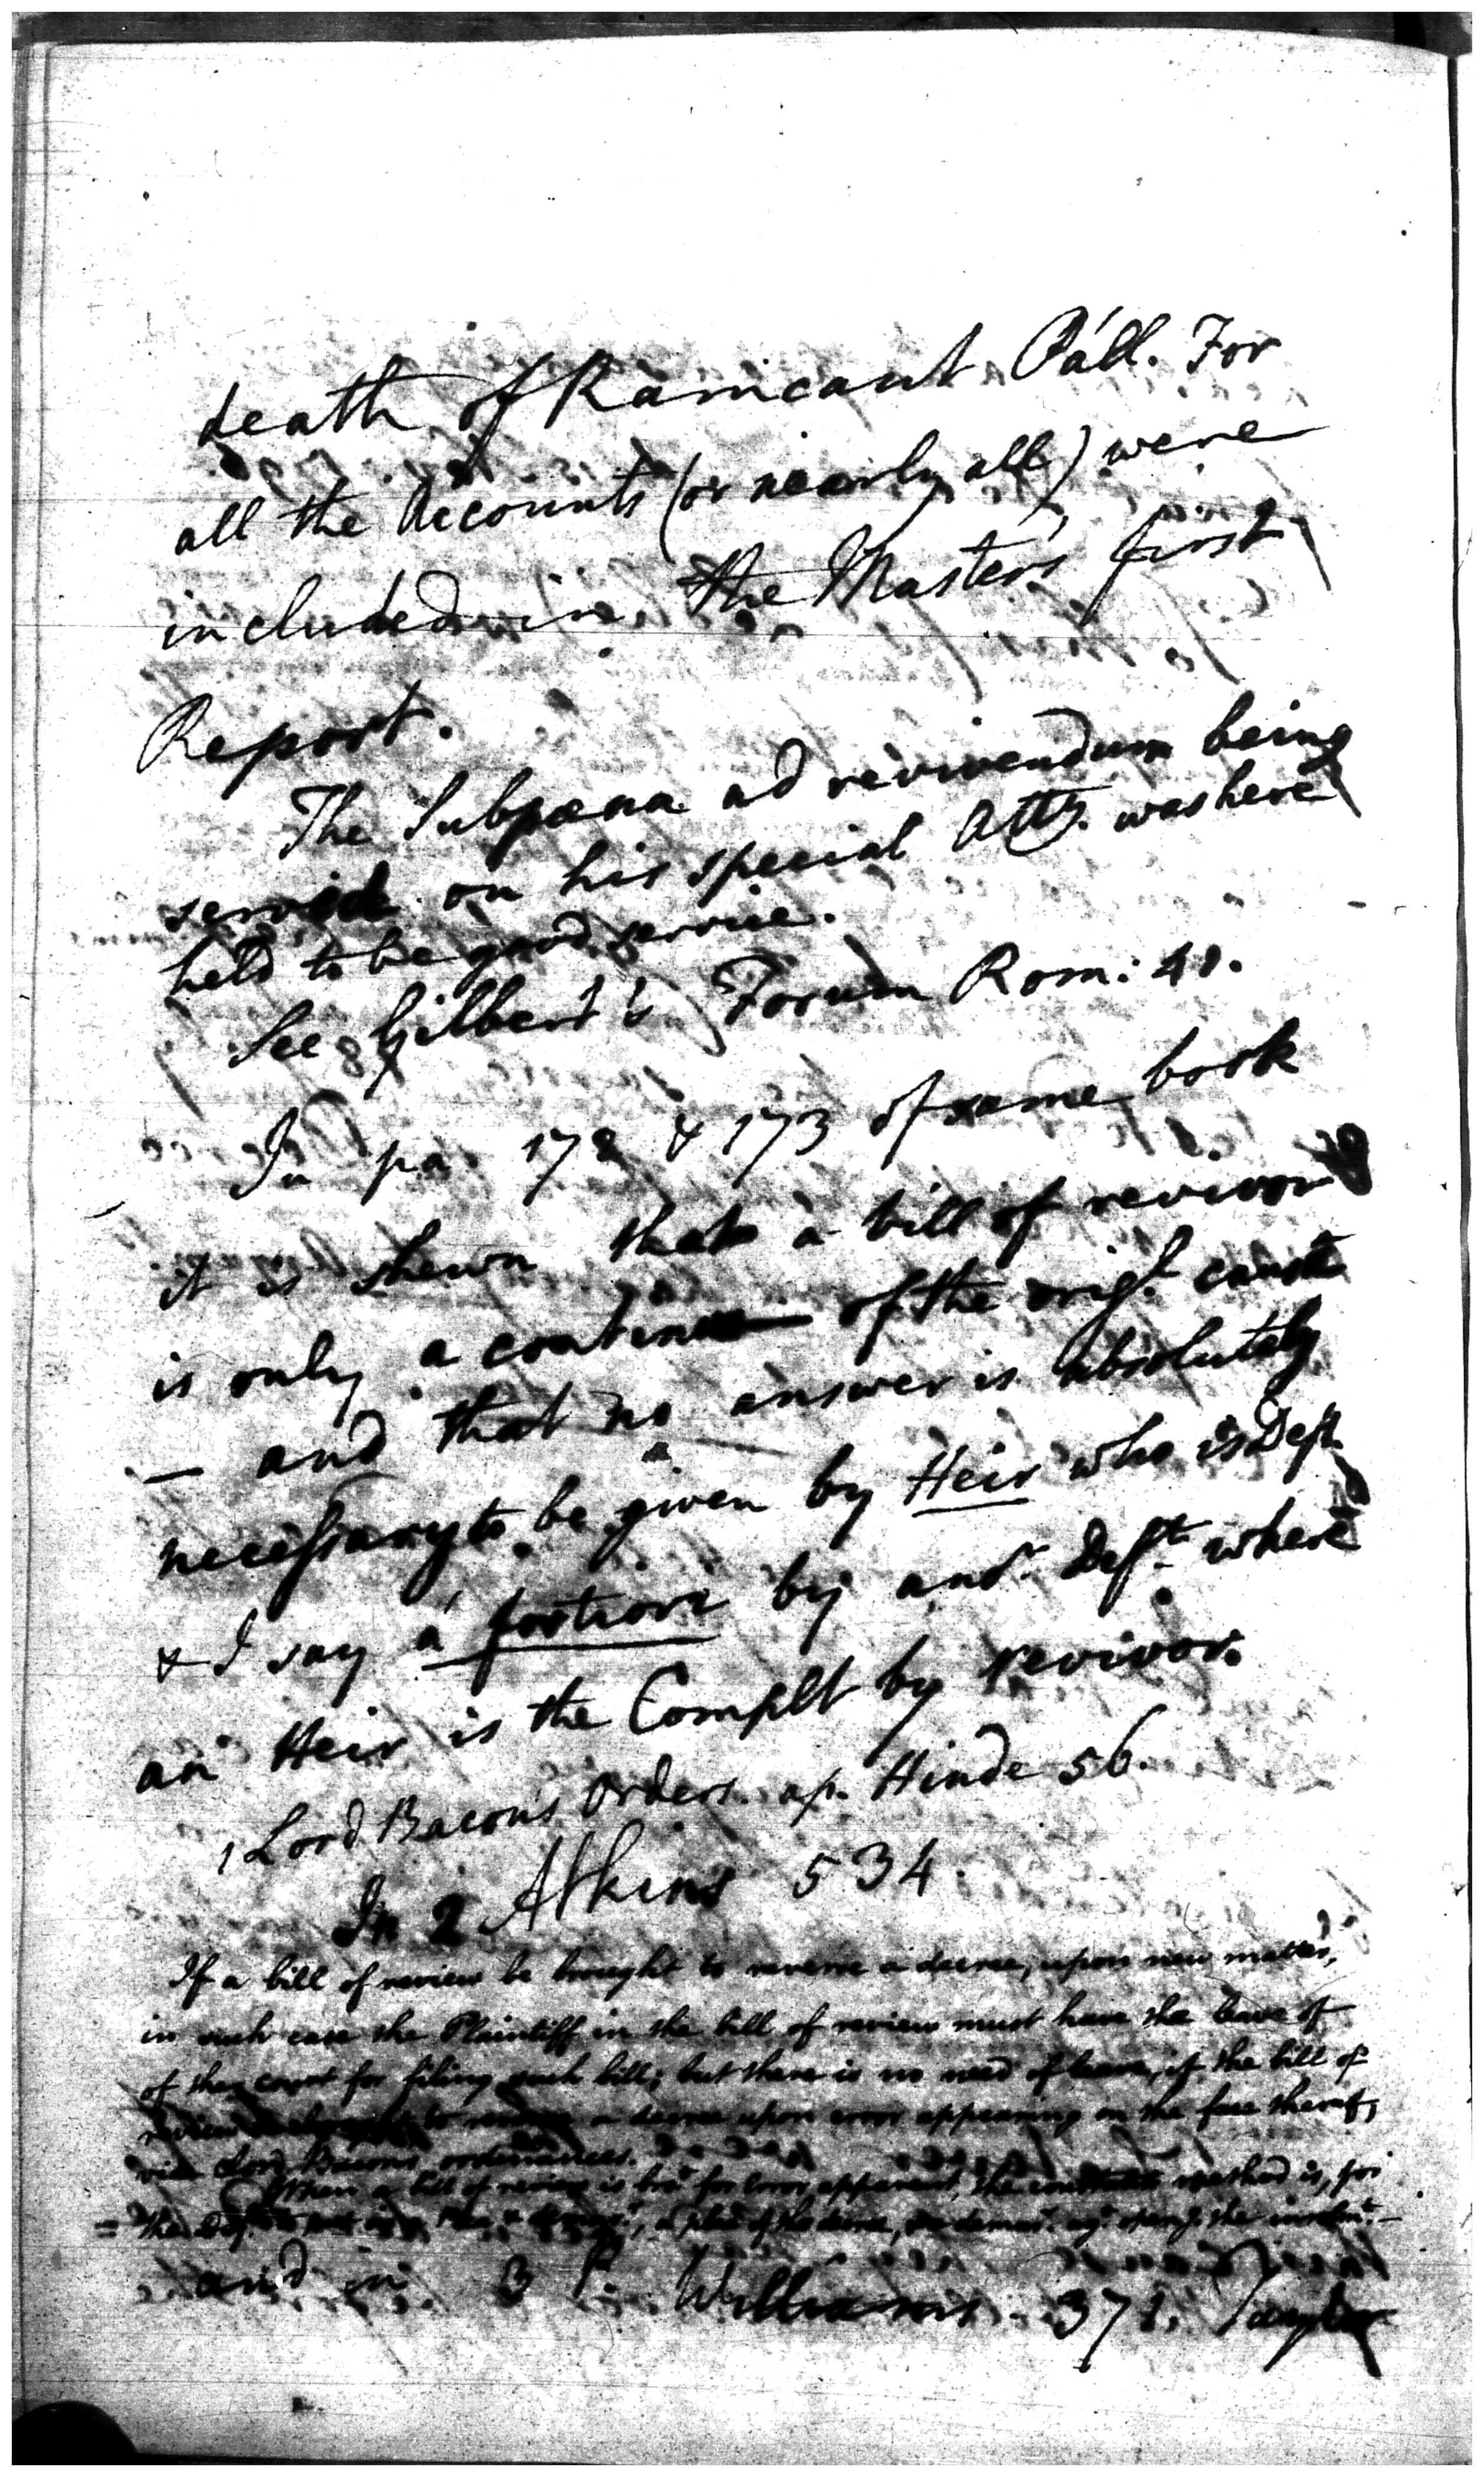 death of Ramcant Páll. For
all the Accounts (or nearly all) were
included in the Master's first
Report.
The Subpœna ad revivendum being
served on his special Atty. was here
held to be good service.
See Gilbert's Forum Rom: 41.
In pa. 172 & 173 of same book
it is shewn that a bill of revivor
is only a of the orig.l cause
— and that no answer is absolutely
necessary to be given by Heir who is Deft.
& I say á fortiori by anor. Deft. where
an Heir is the Complt by revivor.
1 Lord Bacon's Orders ap. Hinde 56.
In 2 Atkins 534.
If a bill of review be brought to reverse a decree, upon new matter,
in such case the Plaintiff in the bill of review must have the leave of
of the court for filing such bill; but there is no need of leave, if the bill of
review to a decree upon error appearing on the face thereof,
vide Lord Bacons ordinances.
When a bill of review is brot. for error apparent, the method is, for
the Deft. to put in a Plea & demurr.r, a plea of the decree, demurr.r agt. openg. the
and in 3 P. Williams. 371. Taylor